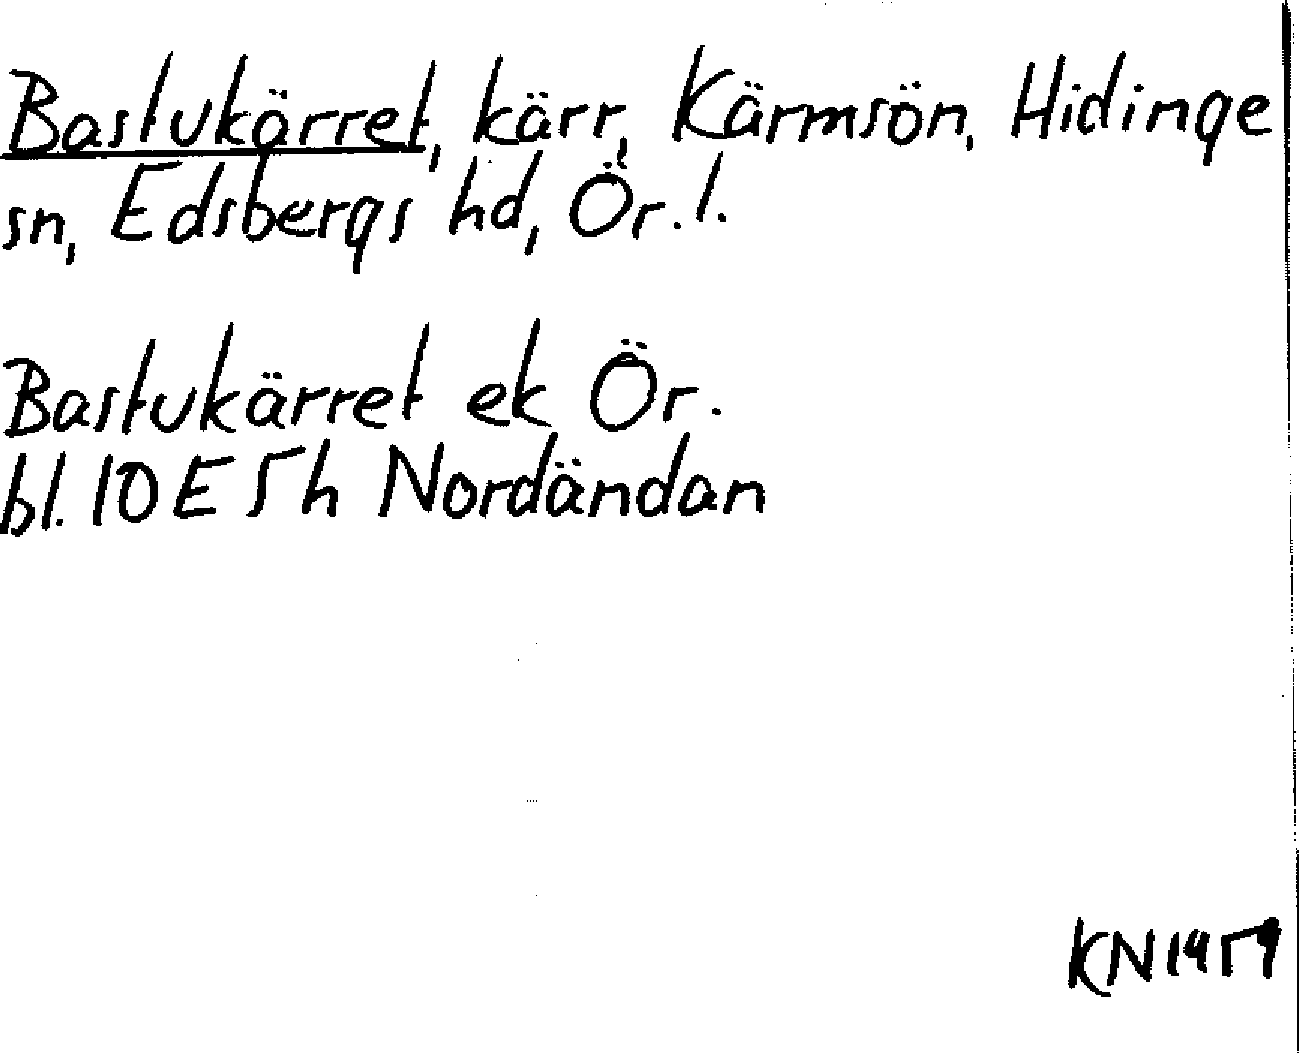 Bastukärret, kärr, Kärmsön, Hidinge
sn, Edsbergs hd, Ör. l.
Bastukärret ek Ör.
bl. 10E 5h Nordändan
KN1959